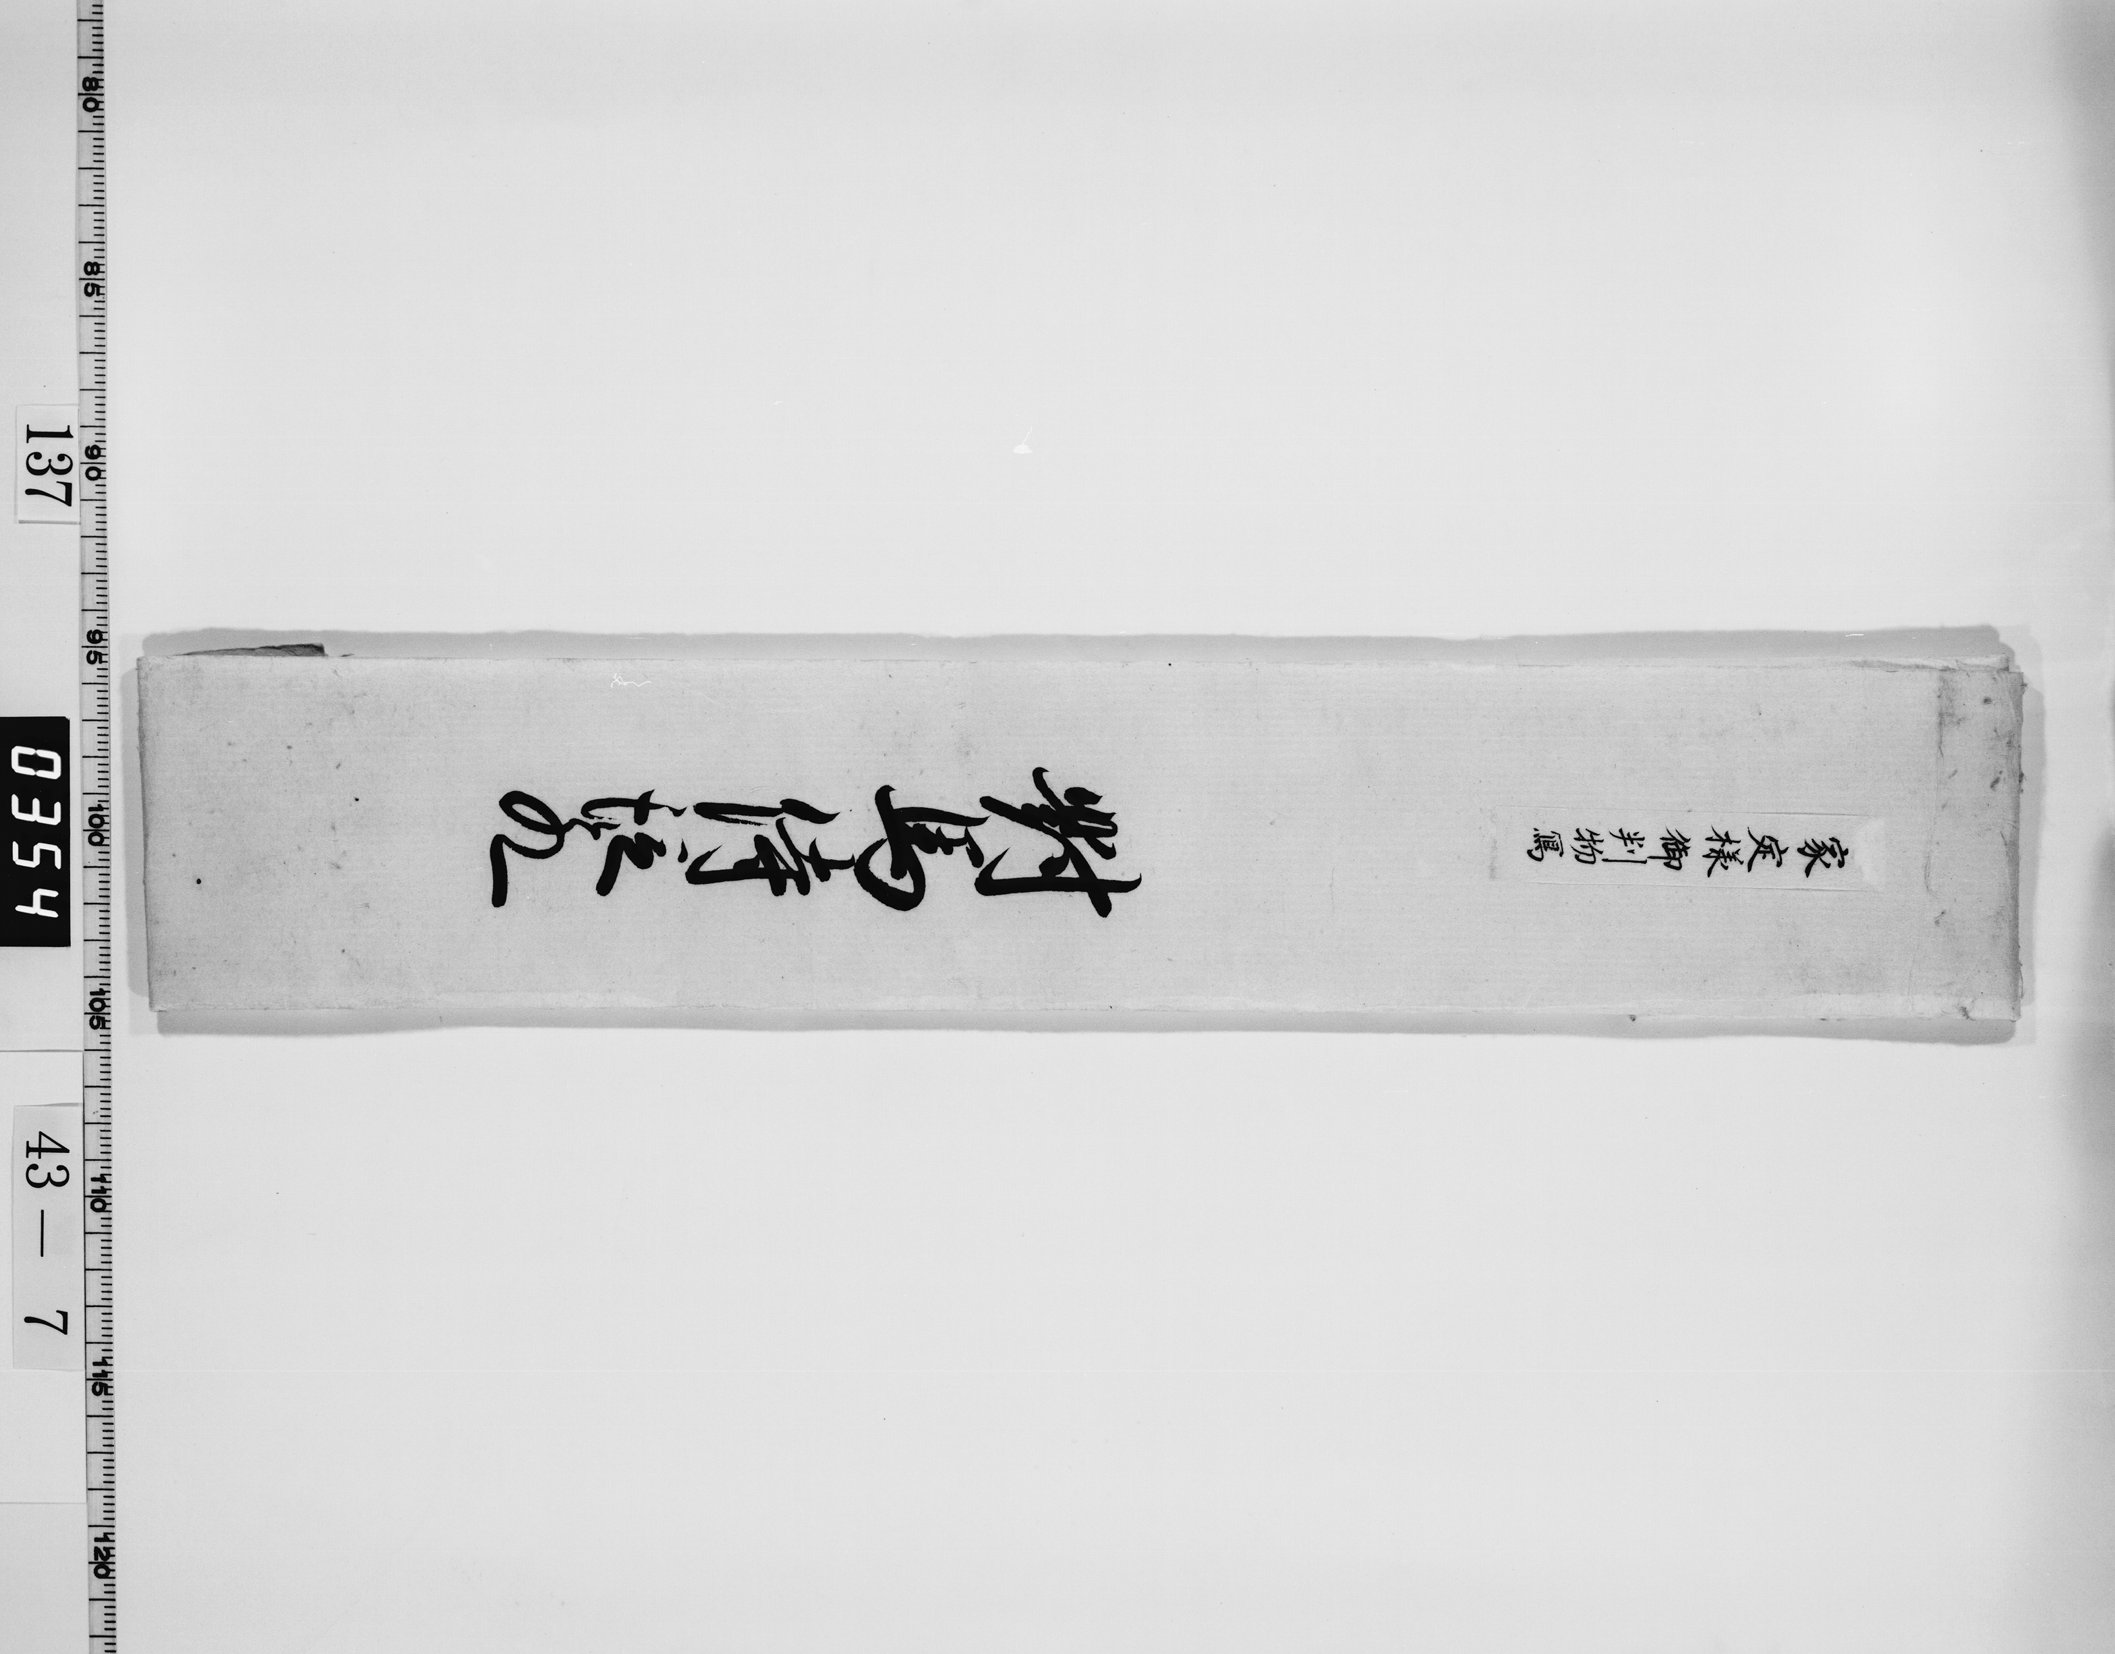 家定様御判物寫
對馬侍従とのへ
137
0354
43—7
80 85 90 95 100 105 110 115 120